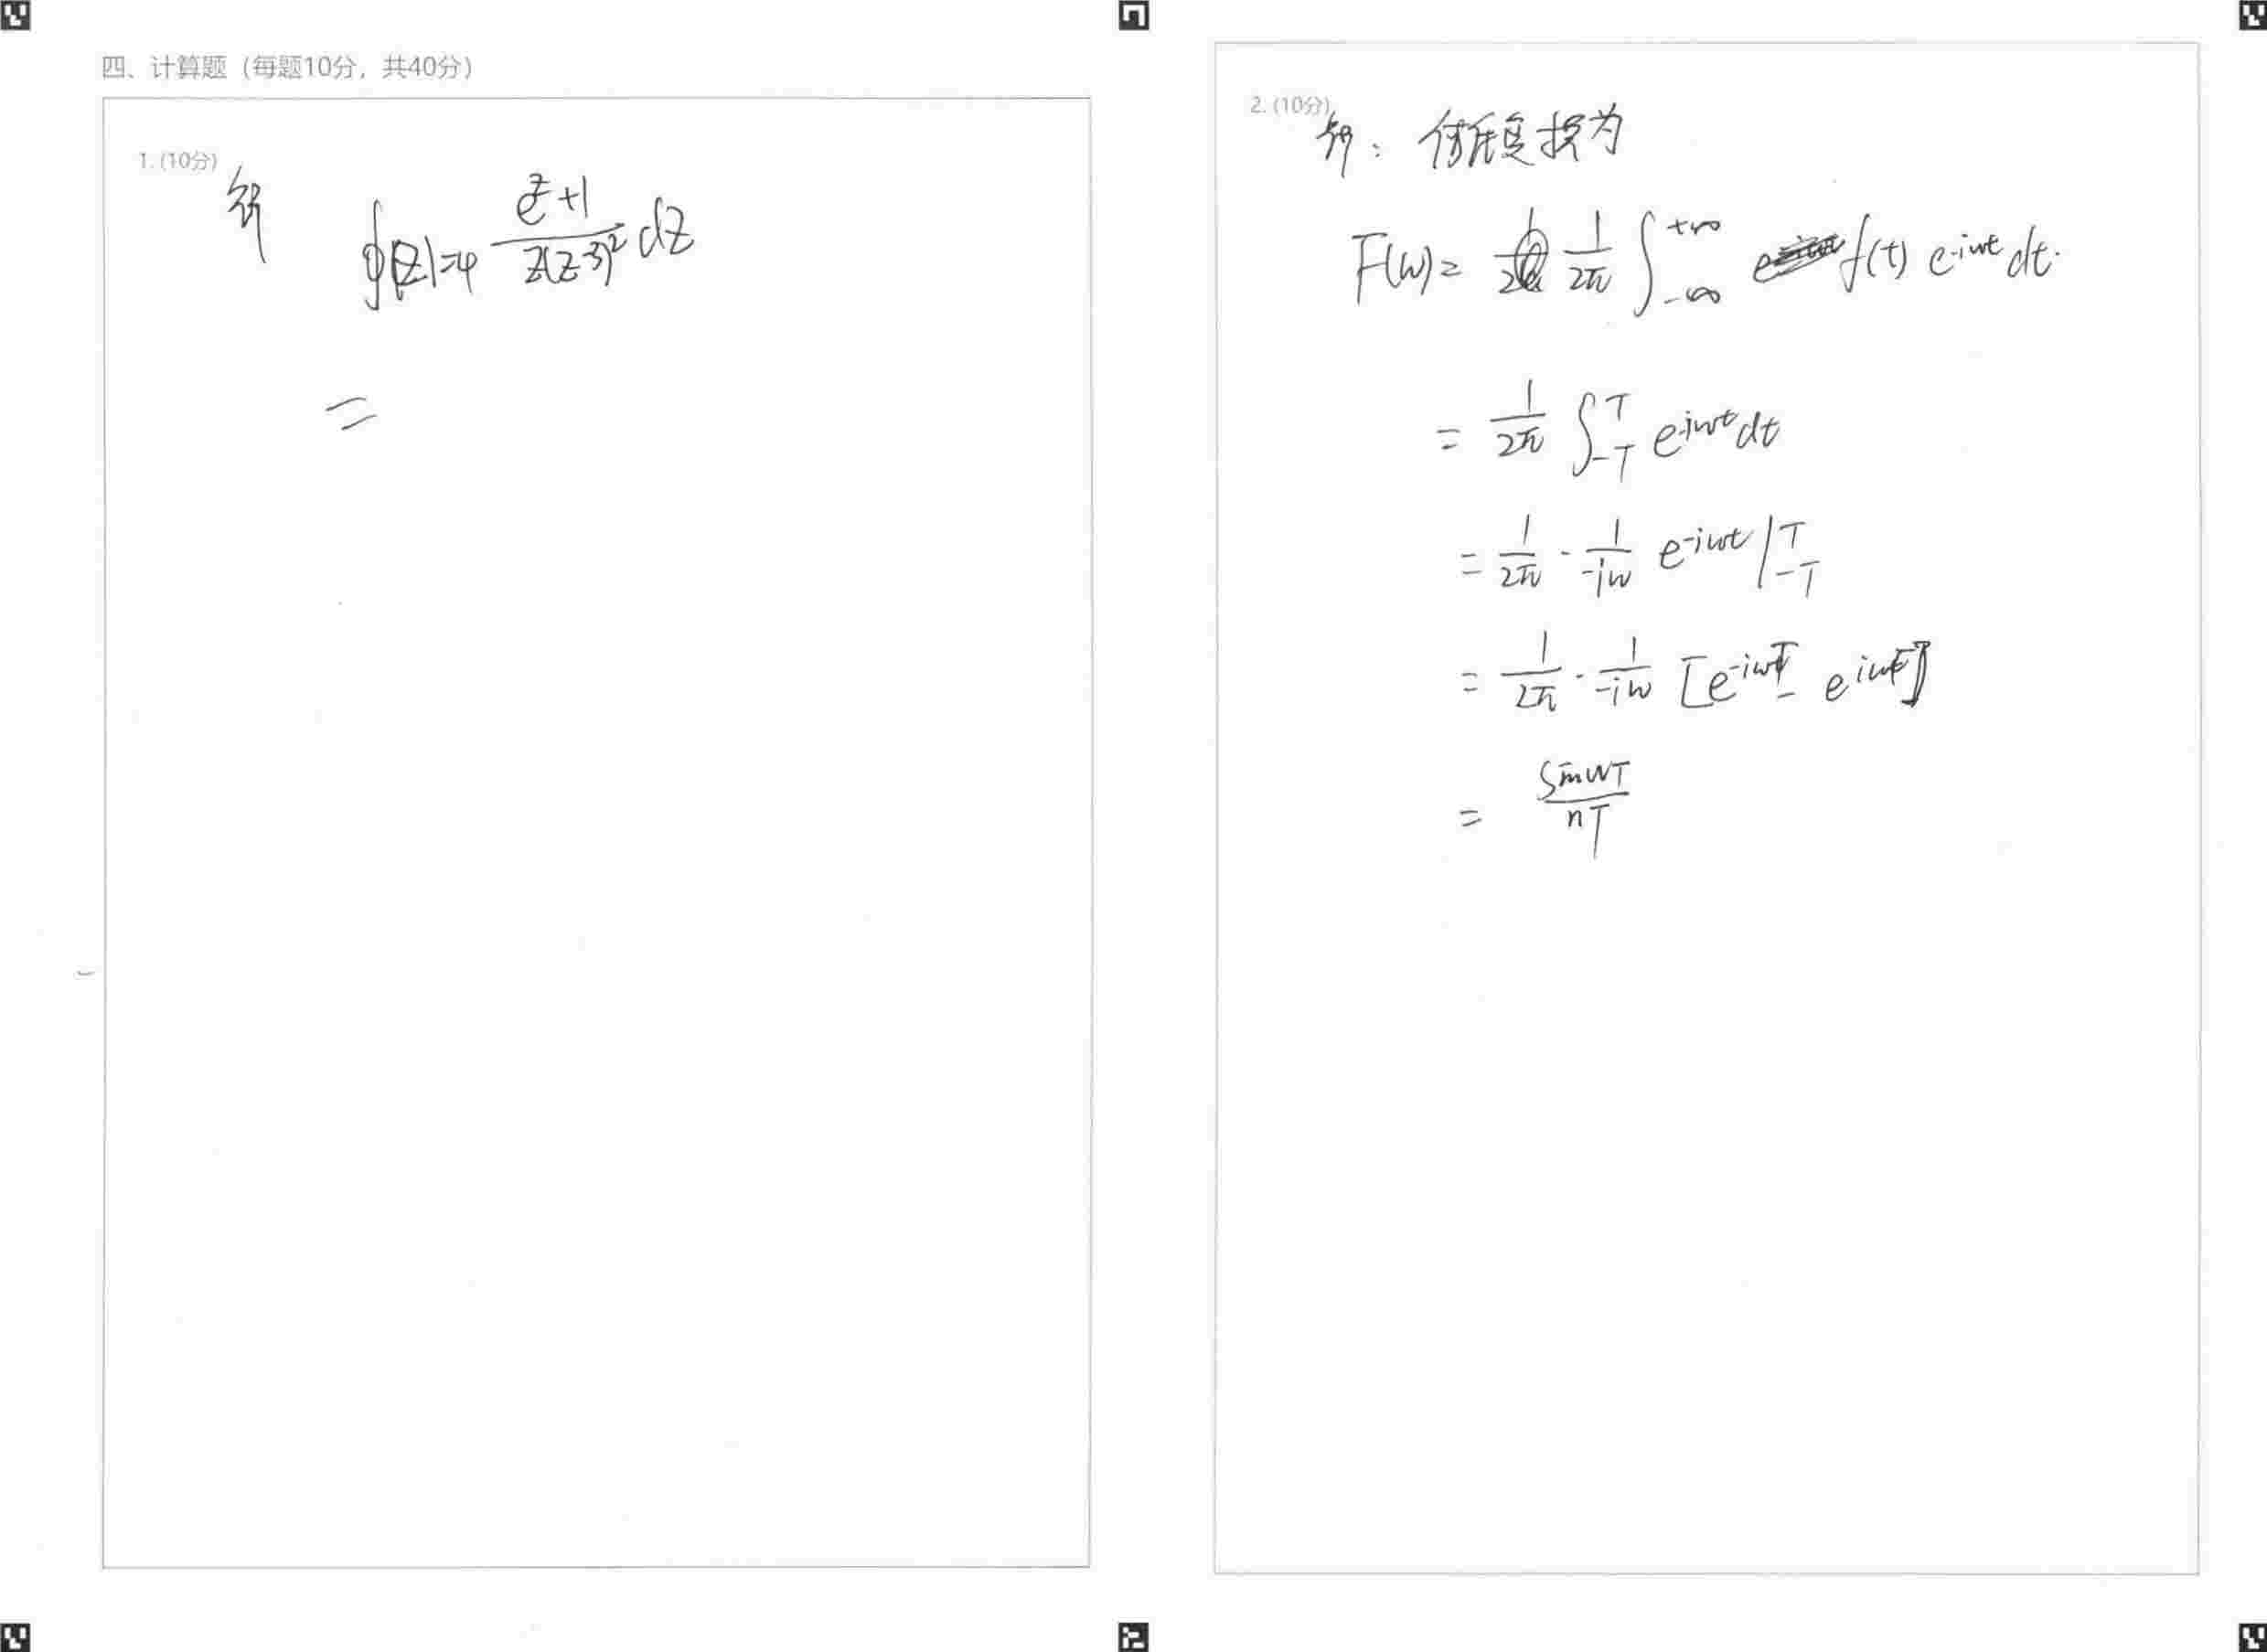 四、计算题（每题10分，共40分）
1. (10分)
解
∮|z|=4 (e^z+1)/(z(z-3)^2) dz
=
2. (10分)
解：傅氏变换为
F(w)= 1/2π ∫_{-∞}^{+∞} f(t) e^{-iwt} dt.
= 1/2π ∫_{-T}^{T} e^{-iwt} dt
= 1/2π · 1/-iw e^{-iwt} |_{-T}^{T}
= 1/2π · 1/-iw [e^{-iwT} - e^{iwT}]
= sinwT/πT